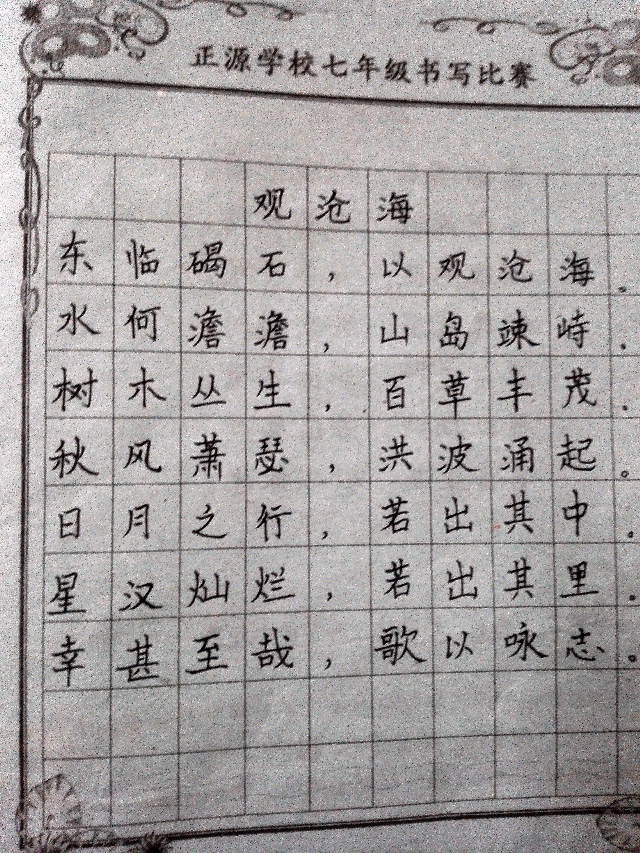 正源学校七年级书写比赛
观沧海
东临碣石,以观沧海。
水何澹澹,山岛竦峙.
树木丛生,百草丰茂.
秋风萧瑟,洪波涌起。
日月之行,若出其中.
星汉灿烂,若出其里.
幸甚至哉,歌以咏志。